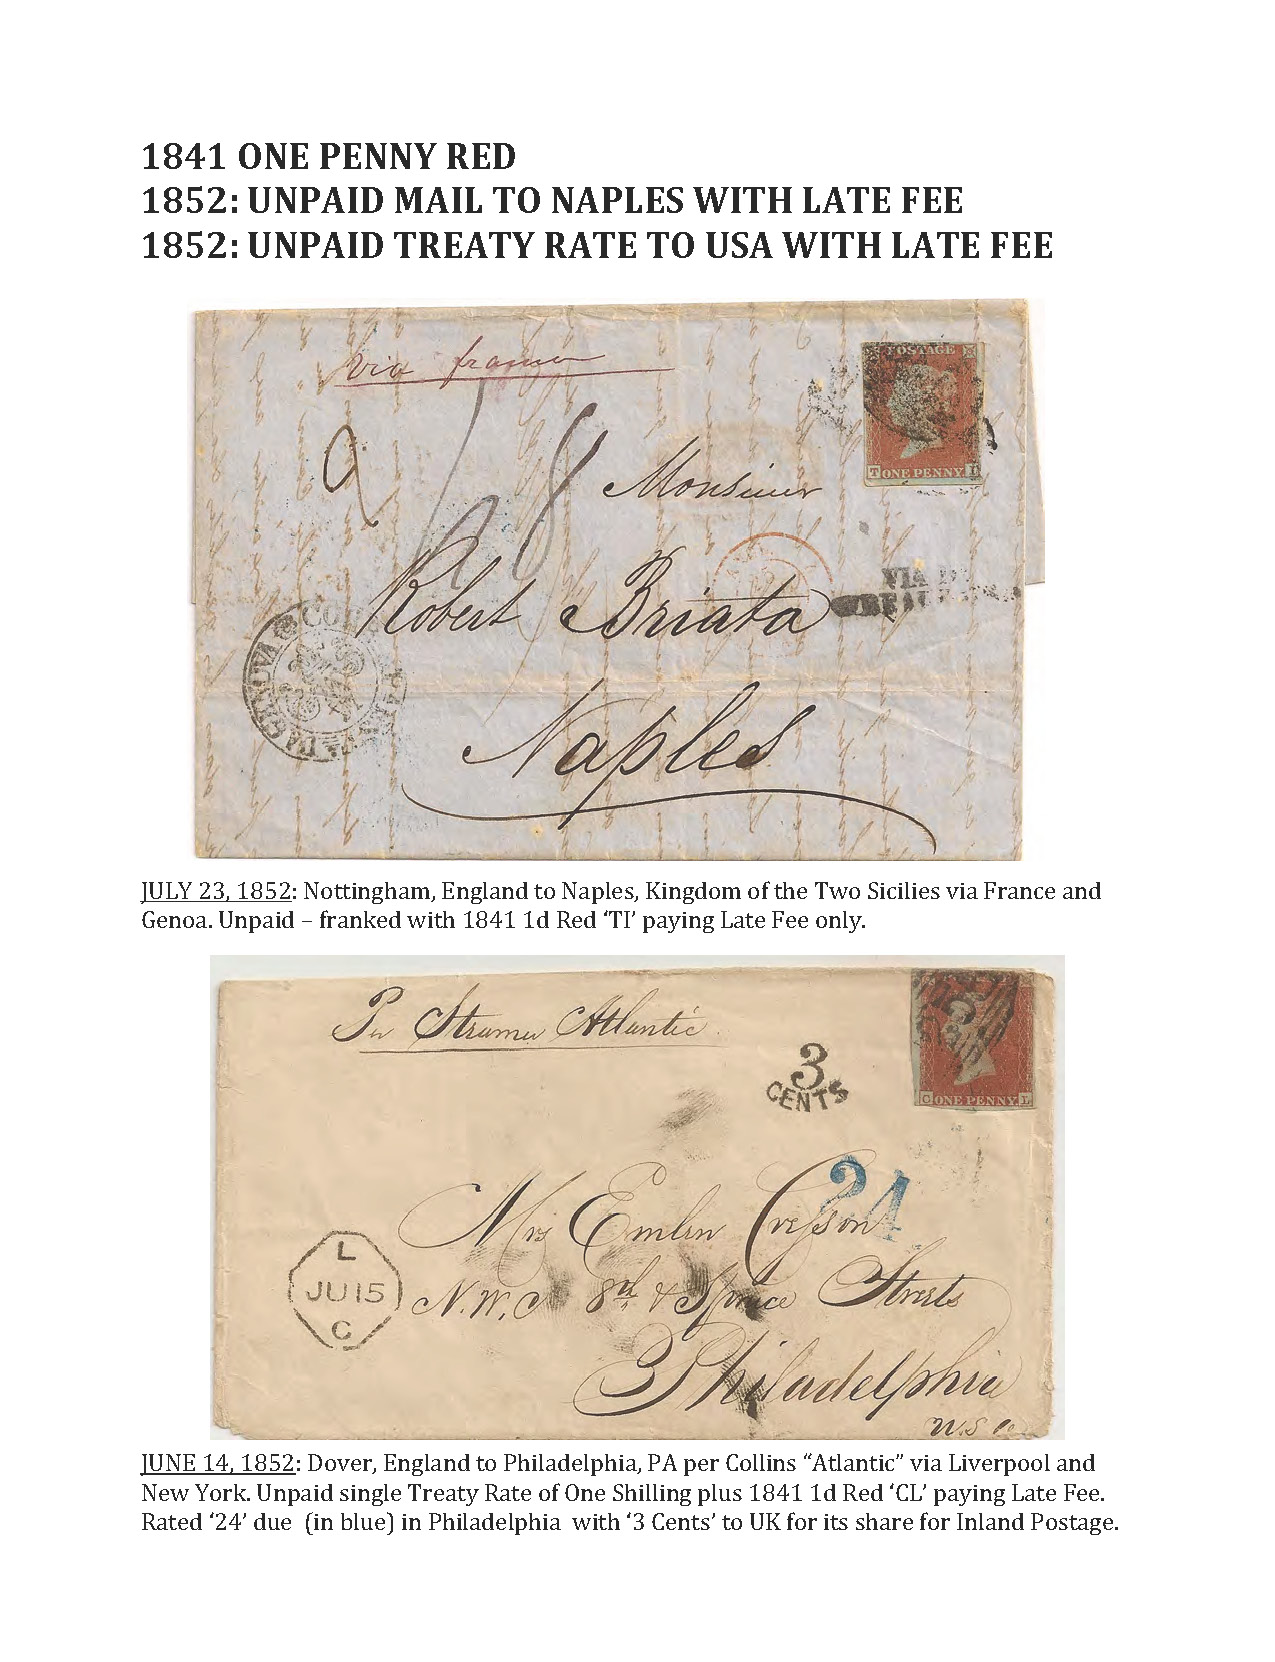 1841 ONE PENNY RED
1852: UNPAID MAIL TO NAPLES WITH LATE FEE
1852: UNPAID TREATY RATE TO USA WITH LATE FEE
via france
POSTAGE
T ONE PENNY I
2
Monsieur
Robert Briata
VIA DI
Naples
JULY 23, 1852: Nottingham, England to Naples, Kingdom of the Two Sicilies via France and
Genoa. Unpaid – franked with 1841 1d Red ‘TI’ paying Late Fee only.
Per Steamer Atlantic
3
CENTS
C ONE PENNY L
24
Mrs Emlen Cresson
L
JU 15
C
N.W.C 8th & Spruce Streets
Philadelphia
U.S.
JUNE 14, 1852: Dover, England to Philadelphia, PA per Collins “Atlantic” via Liverpool and
New York. Unpaid single Treaty Rate of One Shilling plus 1841 1d Red ‘CL’ paying Late Fee.
Rated ‘24’ due  (in blue) in Philadelphia  with ‘3 Cents’ to UK for its share for Inland Postage.